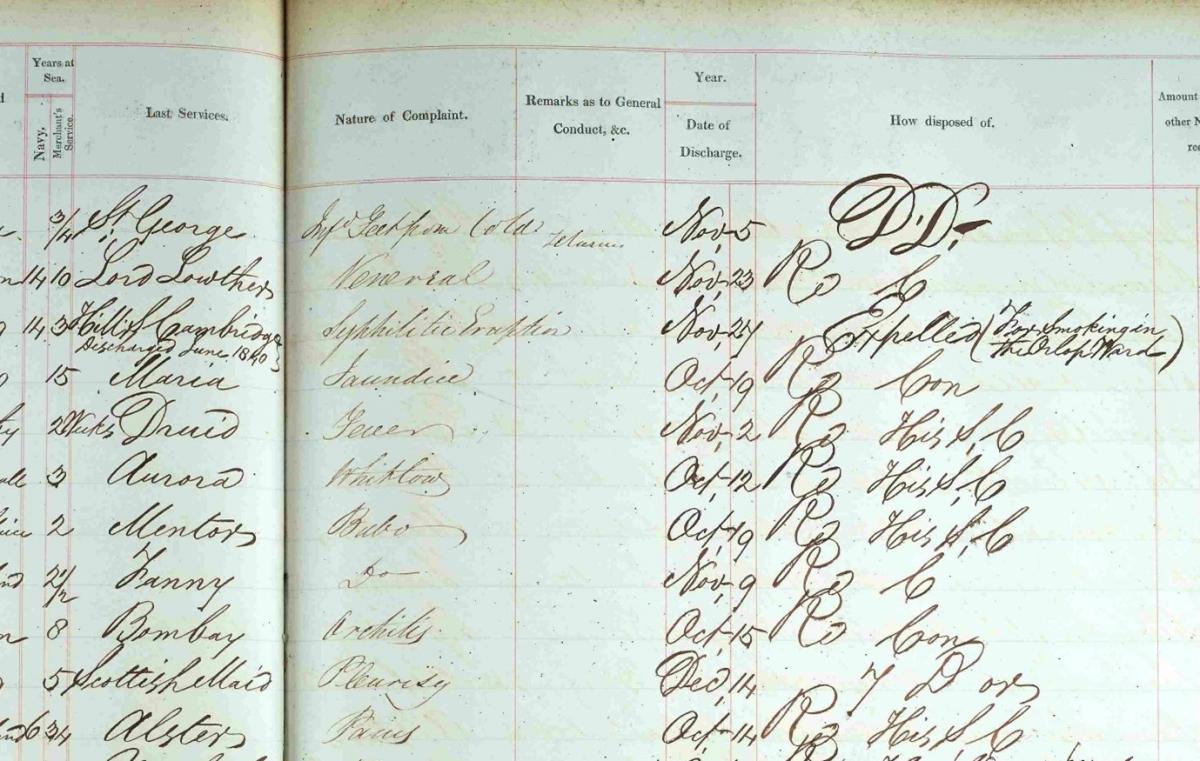 Years at Sea.
Navy.
Merchant's Service.
Last Services.
Nature of Complaint.
Remarks as to General Conduct, &c.
Year.
Date of Discharge.
How disposed of.
Amount
other N
rec
3/4 St. George Feet from Cold Tetanus Nov, 5 D.D.
14 10 Lord Lowther Venereal Nov, 23 Re C
14 3 Hills Cambridge Syphilitic Eruption Nov, 27 Expelled (For Smoking in
Discharged June 1840 the Orlop Ward)
15 Maria Jaundice Oct, 19 Re Con
2 Weeks Druid Fever Nov, 2 Re His S, C
3 Aurora Whitlow Oct, 12 Re His S, C
2 Mentor Bubo Oct, 19 Re His S, C
2 1/2 Fanny Do Nov, 9 Re C
8 Bombay Orchitis Oct, 15 Re Con
5 Scottish Maid Pleurisy Dec, 14 7 D or
6 34 Alster Pains Oct, 14 Re His S, C